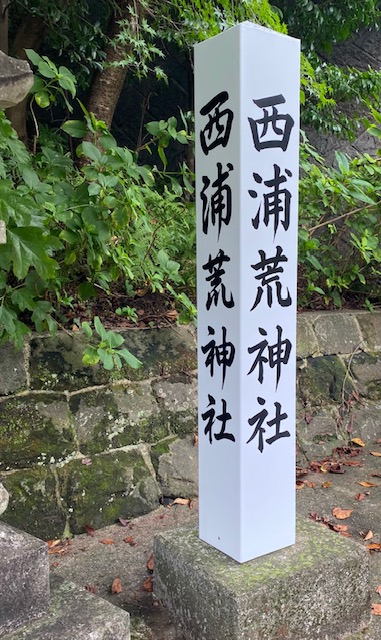 西浦荒神社
西浦荒神社